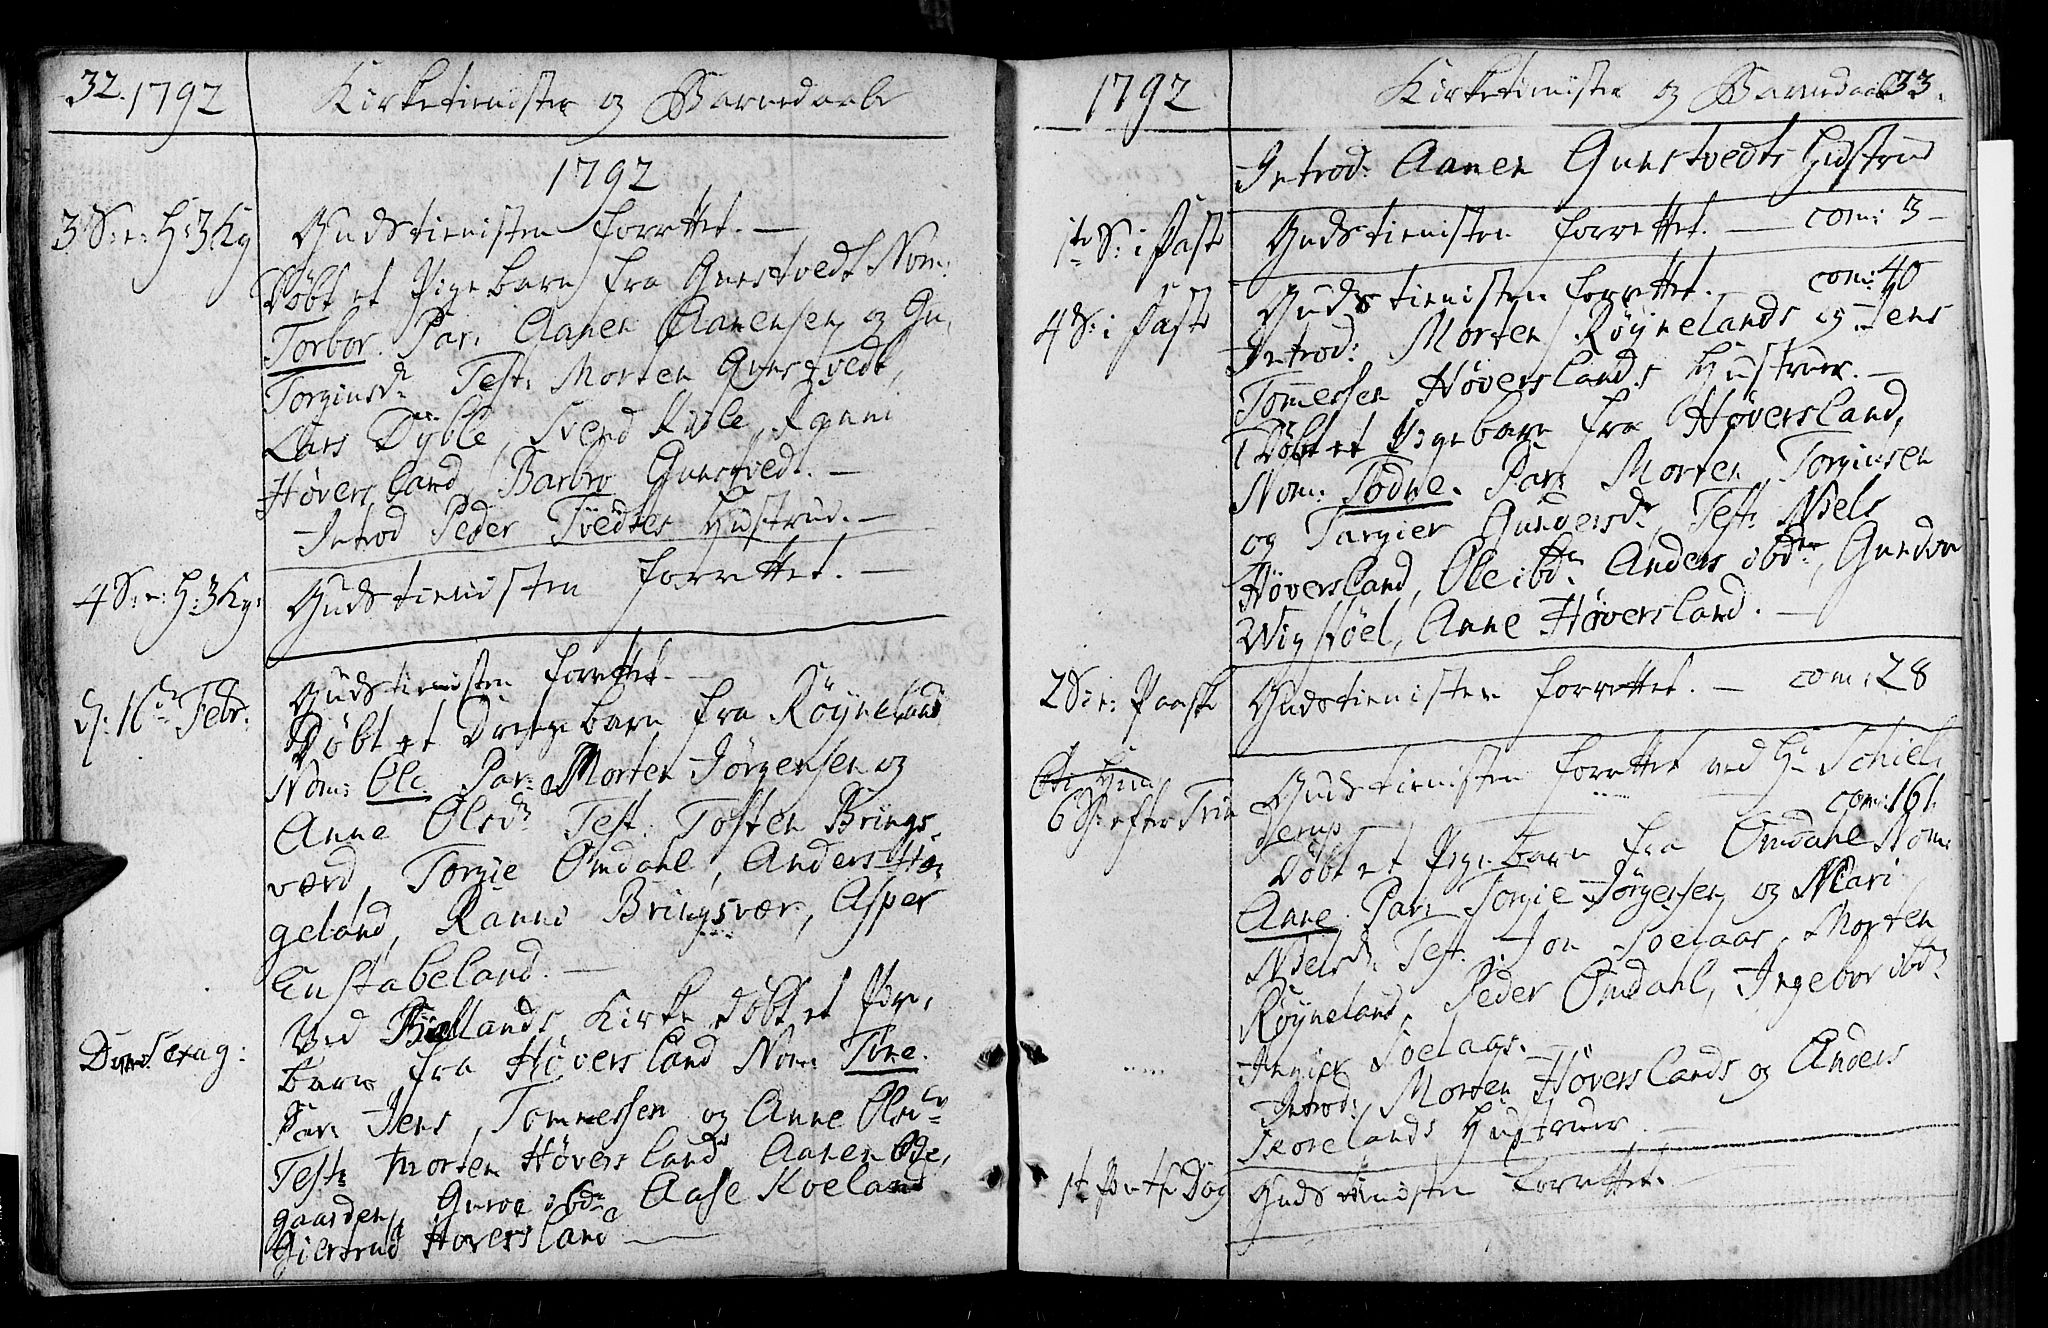 32. 1792 Kirketienisten og Barnedaabe
1792
3 S: e: H: 3 Kg Gudstienisten forrettet. —
Døbt et Pigebarn fra Gunstvedt Nom:
Torbor. Par: Aanen Aanensen og Gu,
Torginsdr Test: Morten Gunstvedt,
Lars Dÿble, Svend Ranni
Høversland, Barbro Gunstvedt. —
Introd Peder Tvedtes Hustrue. —
4 S: e: H: 3 Kg: Gudstienisten forrettet. —
d: 16de Febr: Gudstienisten forrettet —
Døbt et Drengebarn fra Røÿneland
Nom: Ole. Par: Morten Jørgensen og
Anne Olsdr Test: Tosten Brings,
værd, Torgie Omdahl, Anders Hæ,
geland, Ranni Bringsvær, Asper
Eustabeland. —
Dom: Sexag: Ved Biellands Kirke døbt et Pige,
barn fra Høversland Nom: Tone.
Par: Jens Tommessen og Anne Olsdr
Test: Morten Høversland Aanen Øde,
gaarden, Guroe ibdm Aase Kveland
Giertrud Høversland —
1792 Kirketienisten og Barnedaabe 33.
Introd: Aanen Gunstvedts Hustrue
1te S: i Faste Gudstienisten forrettet. — com: 3 —
4 S: i Faste Gudstienisten forrettet. com: 40
Introd: Morten Røÿnelands og Jens
Tommessen Høverslands Hustruer. —
Døbt et Pigebarn fra Høversland,
Nom: Todne. Par: Morten Torginsen
og Targier Gundersdr, Test: Niels
Høversland, Ole ibdm Anders ibdm, Gundvor
Wigstøel, Anne Høversland. —
2 S: e: Paaske Gudstienisten forrettet. — com: 28
6 S: efter Trin Gudstienisten forrettet ved Hr Schiel,
derup com: 161.
Døbt et Pigebarn fra Omdahl Nom:
Anne. Par: Torgie Jørgensen og Mari
Nielsdr Test: Jon Soelaas, Morten
Røÿneland, Peder Omdahl, Ingebor ibdm
Ingier Soelaas.
Introd: Morten Høverslands og Anders
Skorelands Hustruer. —
1te Dag Gudstienisten forrettet. —